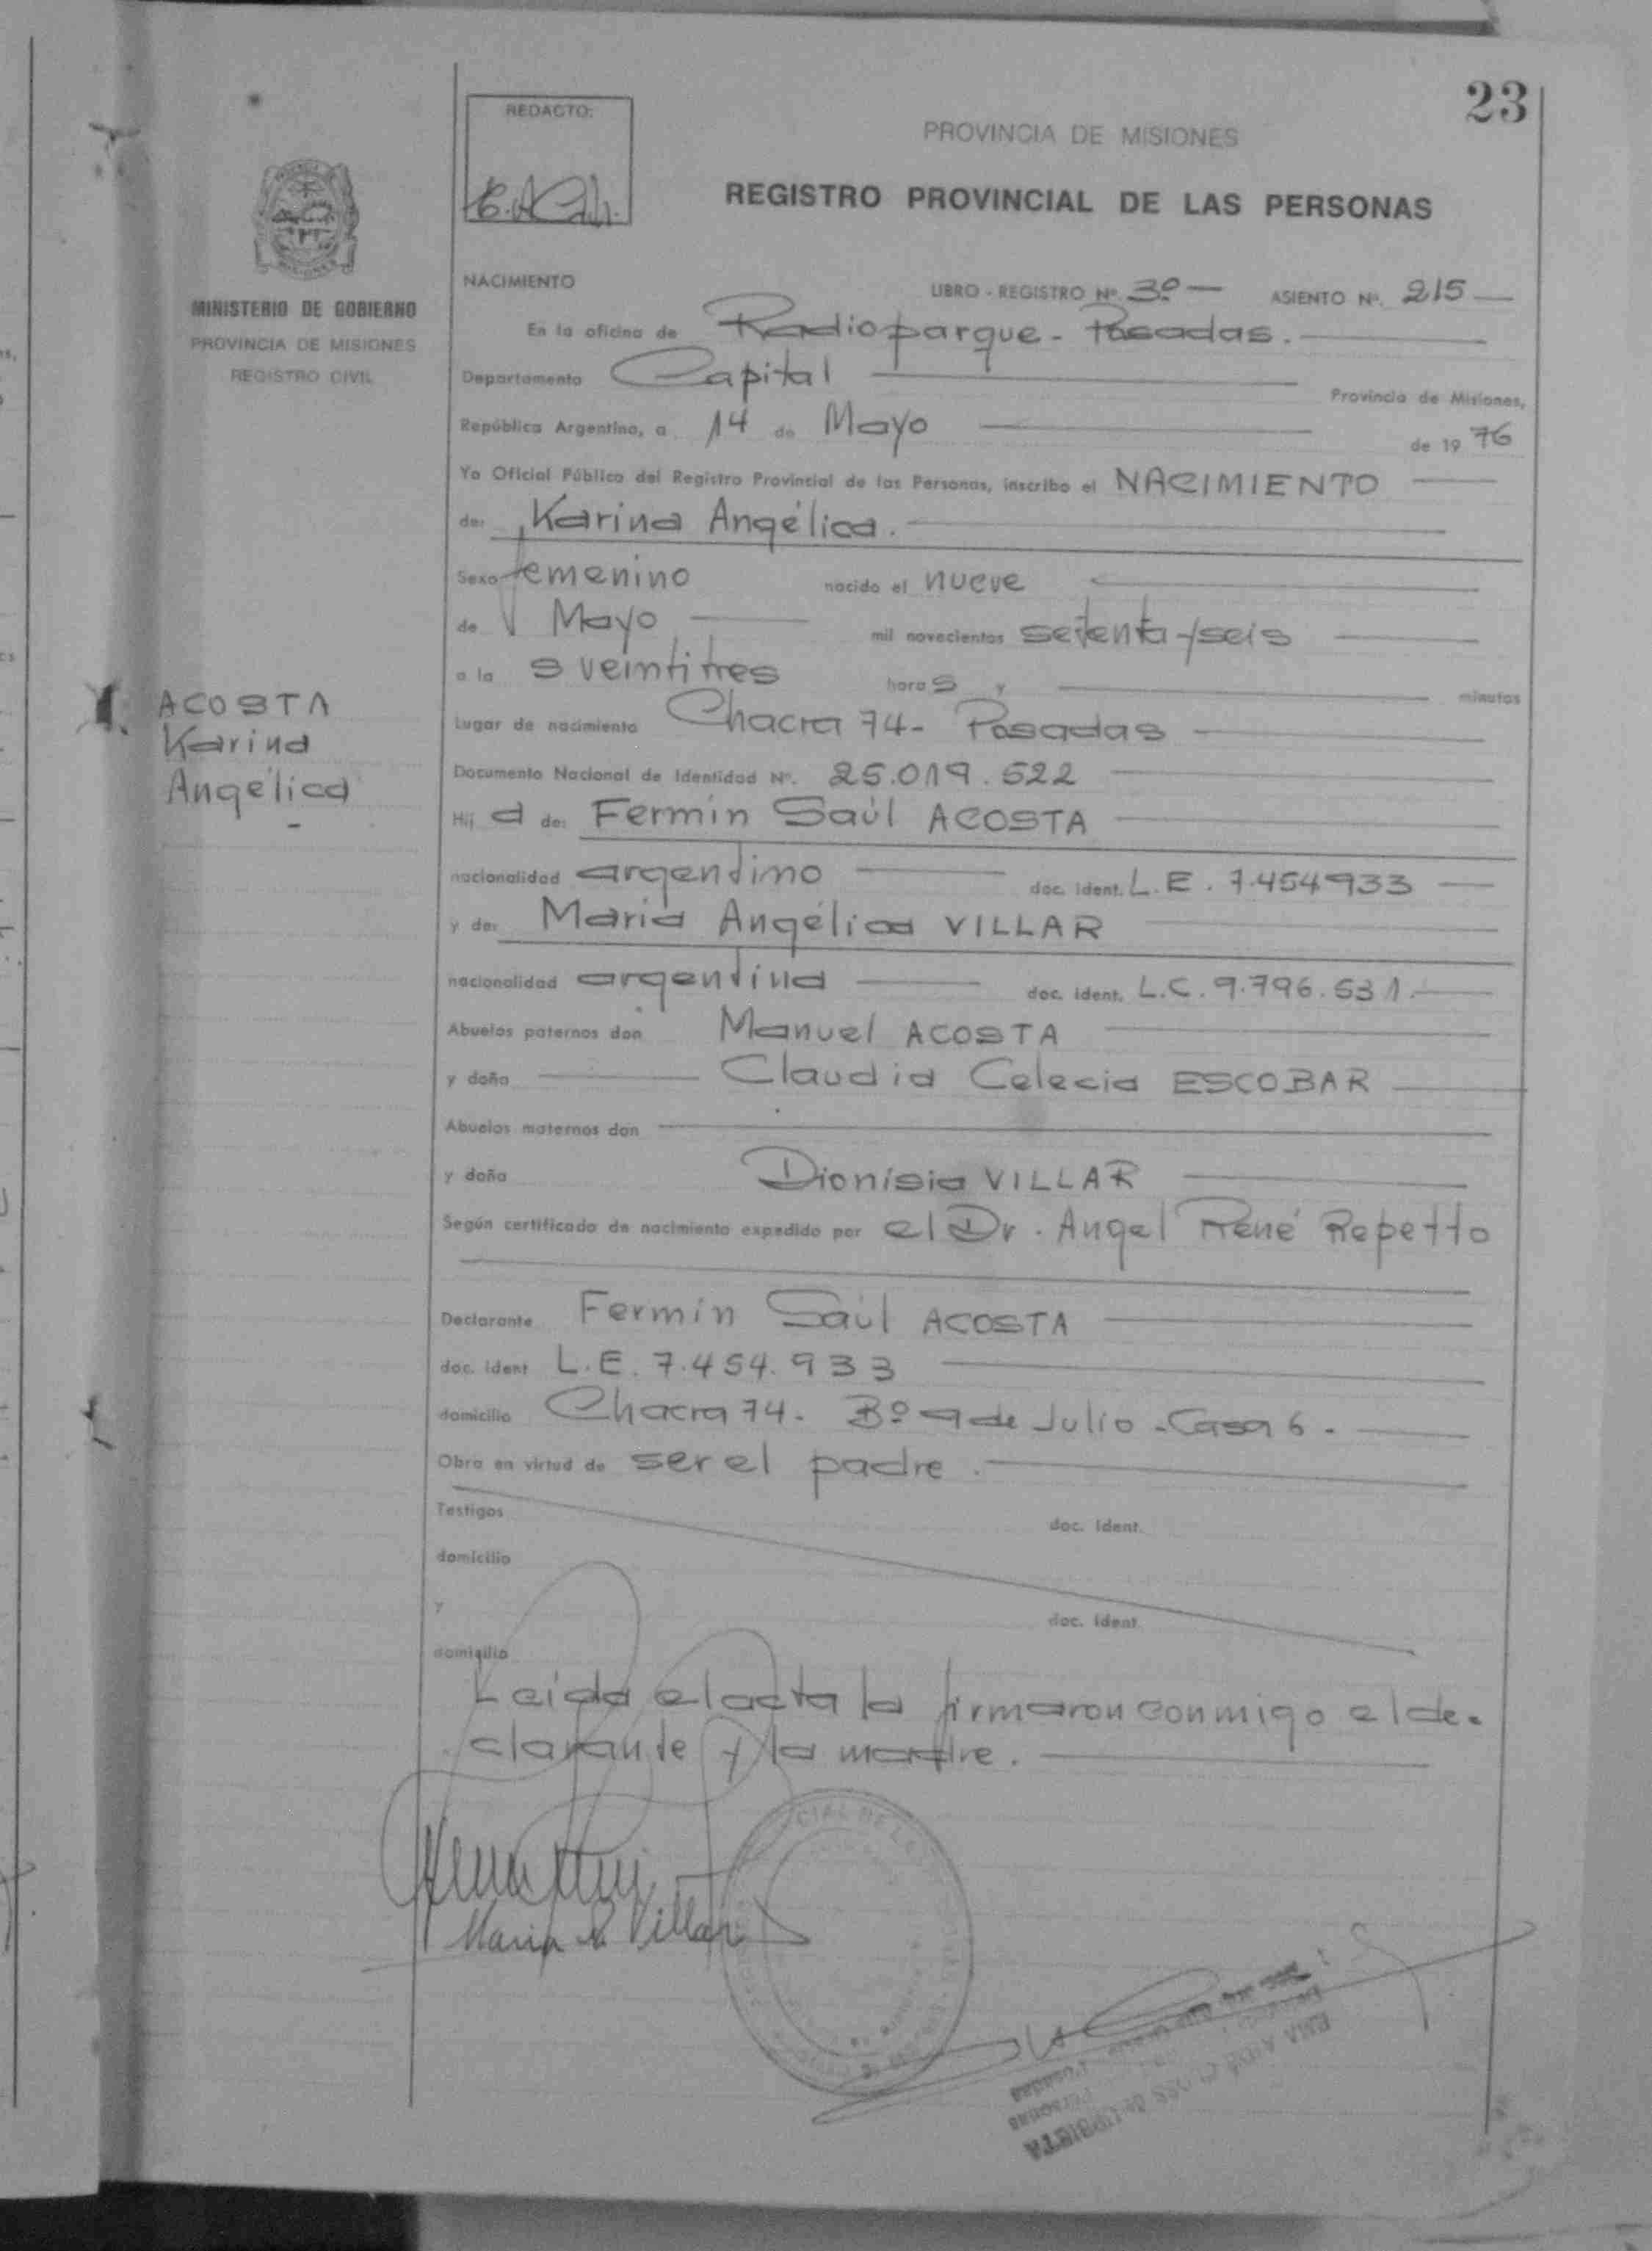 23
REDACTO:
PROVINCIA DE MISIONES
REGISTRO PROVINCIAL DE LAS PERSONAS
MINISTERIO DE GOBIERNO
PROVINCIA DE MISIONES
REGISTRO CIVIL
NACIMIENTO LIBRO - REGISTRO Nº. 3º — ASIENTO Nº. 215 —
En la oficina de Radioparque - Posadas.
Departamento Capital Provincia de Misiones,
República Argentina, a 14 de Mayo de 1976
Yo Oficial Público del Registro Provincial de las Personas, inscribo el NACIMIENTO
de: Karina Angélica.
Sexo femenino nacido el nueve
de Mayo mil novecientos setenta y seis
a la s veintitres horas y minutos
ACOSTA
Karina
Angélica
Lugar de nacimiento Chacra 74 - Posadas
Documento Nacional de Identidad Nº. 25.019.522
Hij a de: Fermín Saúl ACOSTA
nacionalidad argentino doc. ident. L.E. 7.454933
y de: Maria Angélica VILLAR
nacionalidad argentina doc. ident. L.C. 9.796.531.
Abuelos paternos don Manuel ACOSTA
y doña Claudia Celecia ESCOBAR
Abuelos maternos don
y doña Dionisia VILLAR
Según certificado de nacimiento expedido por el Dr. Angel René Repetto
Declarante Fermín Saúl ACOSTA
doc. ident L.E. 7.454.933
domicilio Chacra 74. Bº 9 de Julio - Casa 6.
Obra en virtud de ser el padre.
Testigos doc. ident.
domicilio
y doc. ident
domicilio
Leida el acta la firmaron conmigo el de-
clarante y la madre.
Maria A. Villar